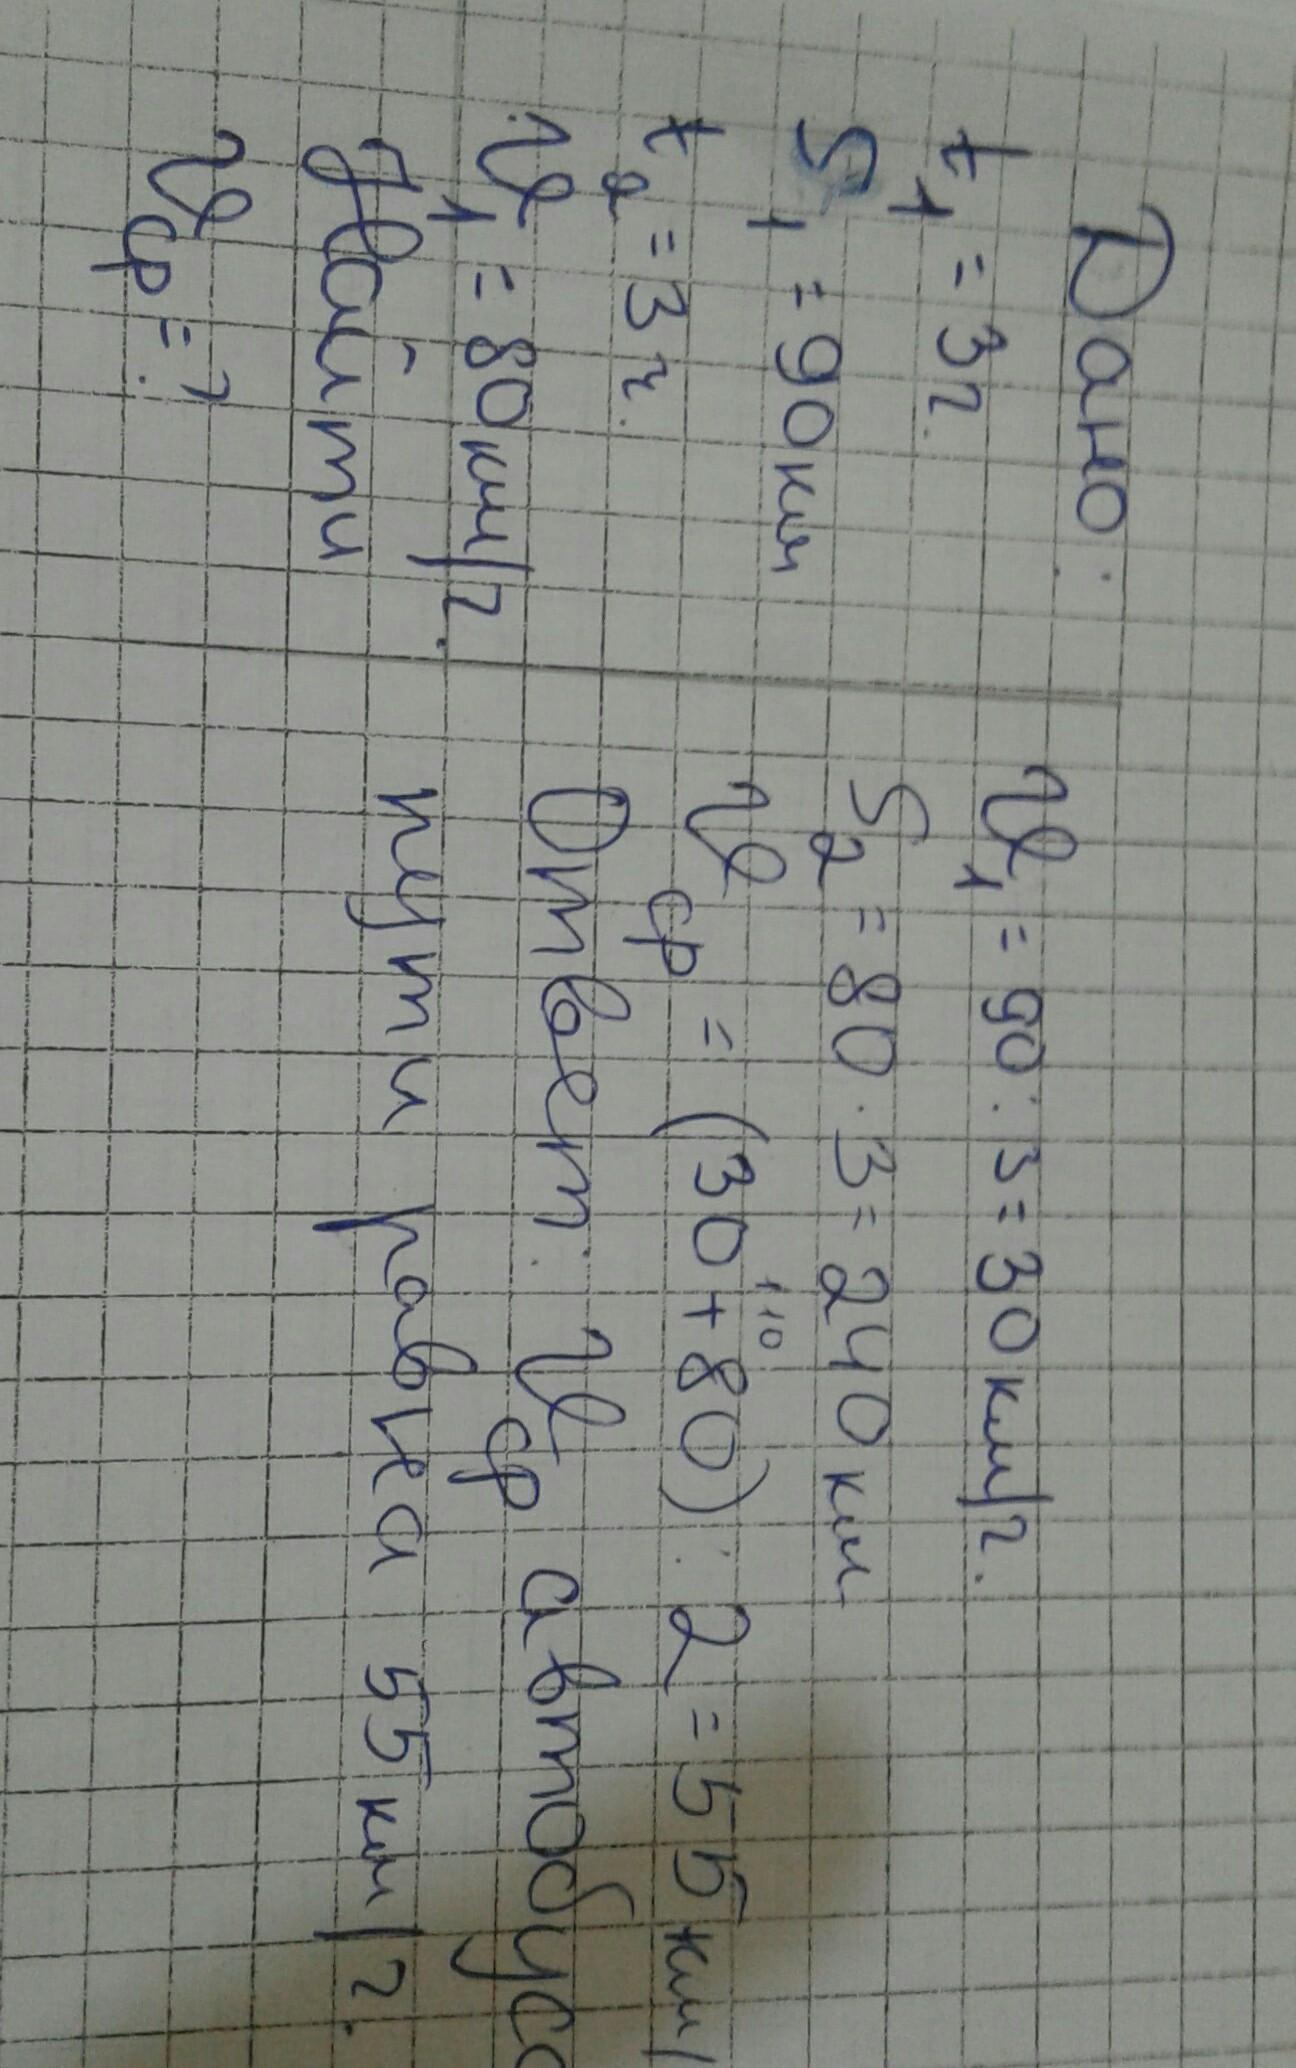 Дано:
t₁ = 3ч.
S₁ = 90км
t₂ = 3ч.
υ₁ = 80км/ч.
Найти
υср = ?
υ₁ = 90 : 3 = 30км/ч.
S₂ = 80 · 3 = 240км
110
υср = (30 + 80) : 2 = 55км/
Ответ: υср автобуса
пути равна 55км/ч.